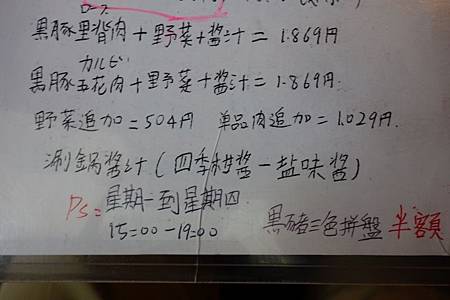 ロース
黒豚里背肉+野菜+醬汁=1.869円
カルビ
黒豚五花肉+野菜+醬汁=1.869円
野菜追加=504円 単品肉追加=1.029円.
涮鍋醬汁(四季柑醬-盐味醬)
Ps=星期一到星期四
15=00-19=00
黒豬三色拼盤 半額